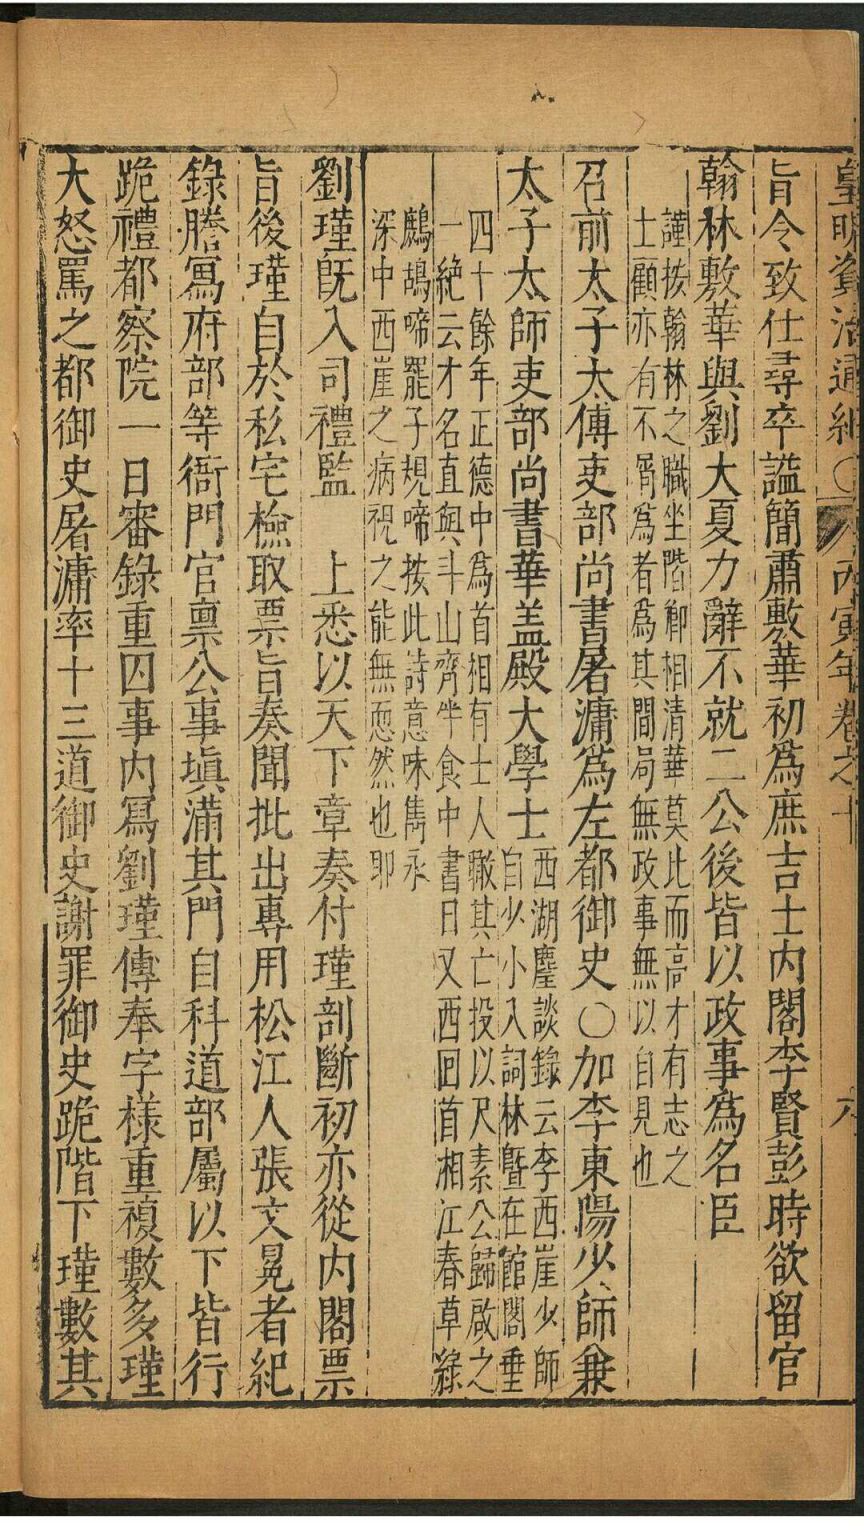 皇明資治通紀〇　丙寅年卷之十　六
旨令致仕尋卒謚簡肅敷華初爲庶吉士内閣李賢彭時欲留官
翰林敷華與劉大夏力辭不就二公後皆以政事爲名臣
謹按翰林之職坐階卿相清華莫此而高才有志之
士顧亦有不屑爲者爲其間局無政事無以自見也
召前太子太傅吏部尚書屠滽爲左都御史〇加李東陽少師兼
太子太師吏部尚書華盖殿大學士
西湖麈談錄云李西崖少師
自少小入詞林曁在館閣垂
四十餘年正德中爲首相有士人瞰其亡投以尺素公歸啟之
一絶云才名直與斗山齊半食中書日又西囬首湘江春草綠
鷓鴣啼罷子規啼按此詩意味雋永
深中西崖之病視之能無恧然也耶
劉瑾旣入司禮監　上悉以天下章奏付瑾剖斷初亦從内閣票
旨後瑾自於私宅檢取票旨奏聞批出專用松江人張文冕者紀
錄謄寫府部等衙門官禀公事塡滿其門自科道部屬以下皆行
跪禮都察院一日審錄重囚事内寫劉瑾傳奉字樣重複數多瑾
大怒罵之都御史屠滽率十三道御史謝罪御史跪階下瑾數其